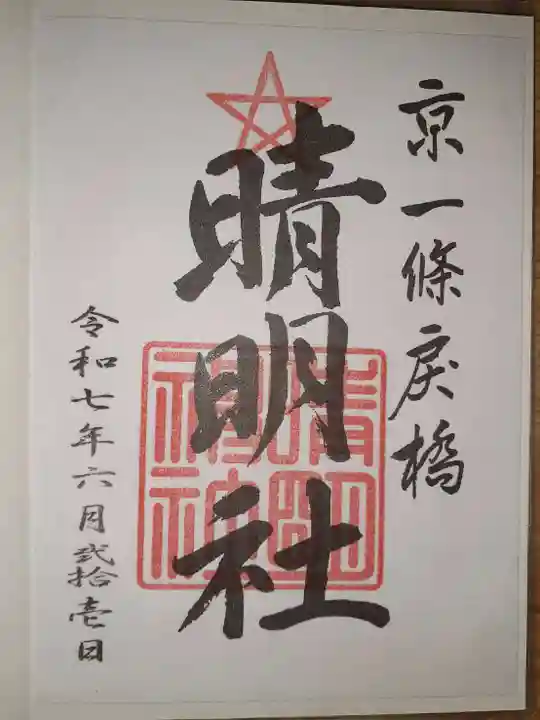 京一條戻橋
晴明社
晴明
神社
令和七年六月弐拾壱日